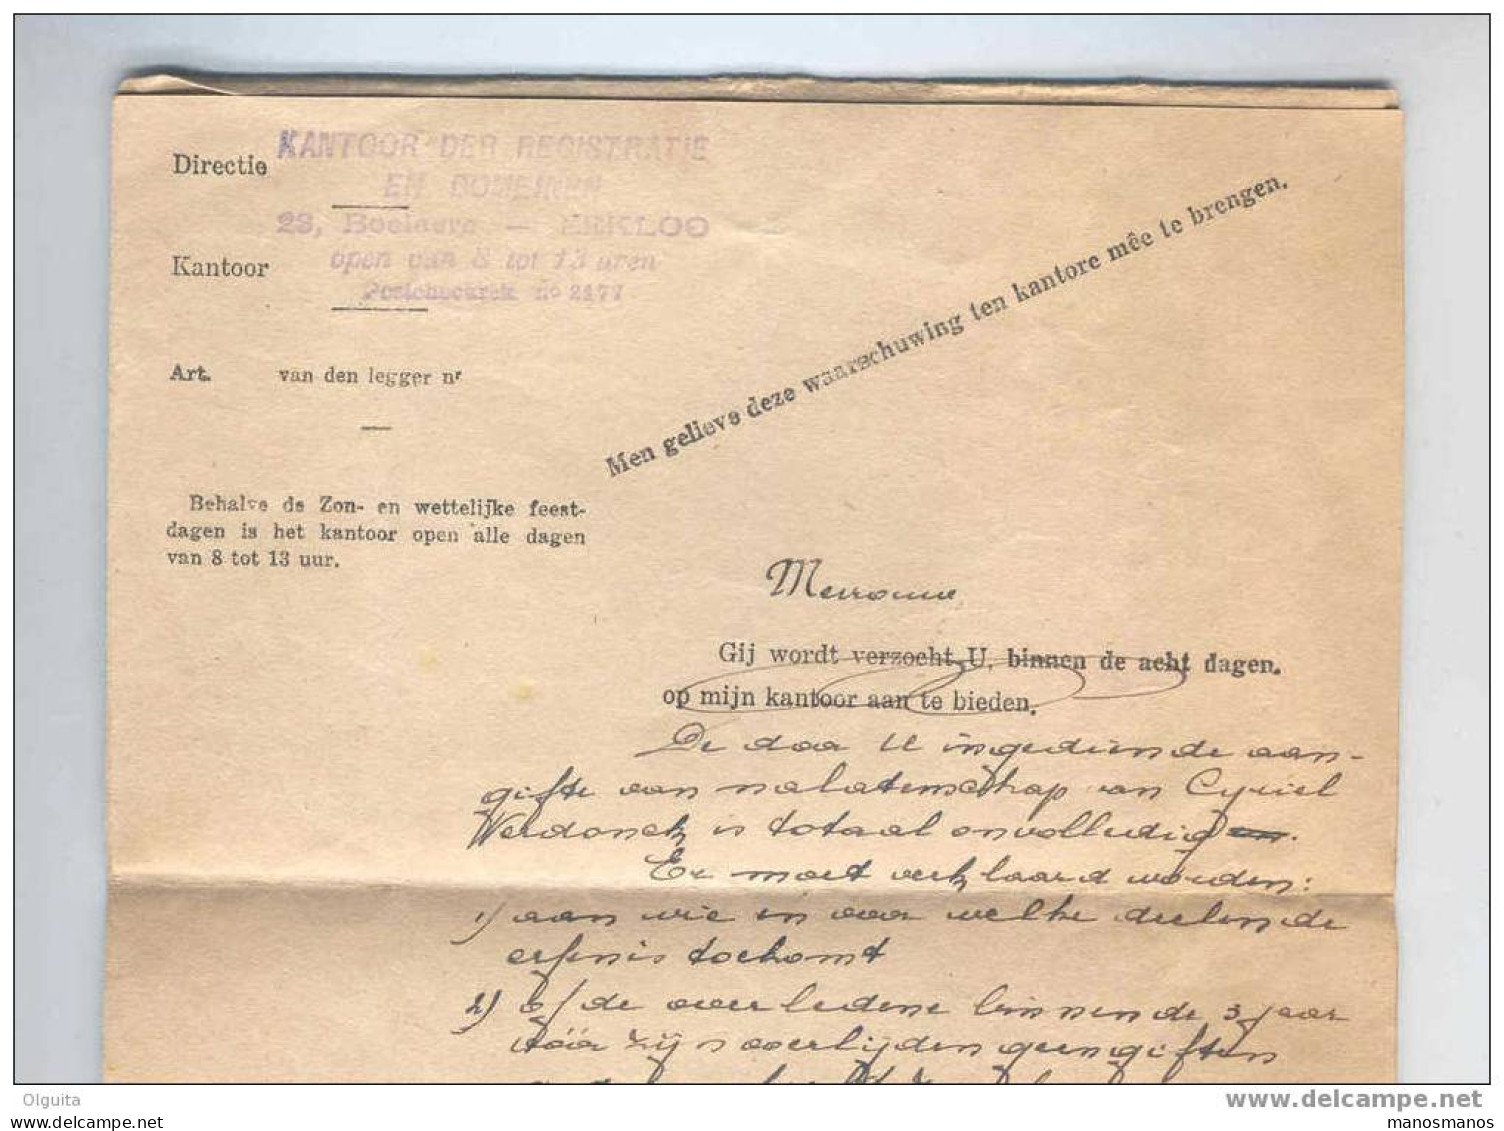 Directie
KANTOOR DER REGISTRATIE
EN DOMEINEN
28, Boelaere — EEKLOO
Kantoor
open van 8 tot 13 uren
Postcheckrek. no 2177
Men gelieve deze waarschuwing ten kantore mêe te brengen.
Art. van den legger nr
Behalve de Zon- en wettelijke feest-
dagen is het kantoor open alle dagen
van 8 tot 13 uur.
Mevrouw
Gij wordt verzocht U, binnen de acht dagen.
op mijn kantoor aan te bieden.
De door U ingediende aan-
gifte van nalatenschap van Cyriel
Verdonck is totaal onvolledig.
Er moet verklaard worden:
1) aan wie en voor welke deelen de
erfenis toekomt
2) of de overledene binnen de 3 jaar
vóór zijn overlijden geen giften
Olguita
www.delcampe.net
manosmanos